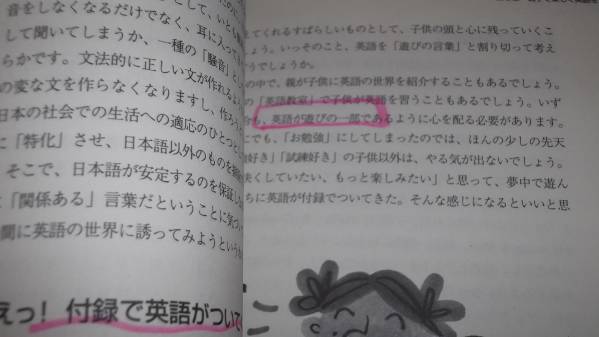 音をしなくなるだけでなく、耳に入って
して聞いてしまうか、一種の「騒音」とし
らかです。文法的に正しい文が作れるよう
の変な文を作らなくなりますし、作ろう
日本の社会での生活への適応のひとつと
に「特化」させ、日本語以外のものを
そこで、日本語が安定するのを保証し
「関係ある」言葉だということに気づい
間に英語の世界に誘ってみようという
えっ！ 付録で英語がついて
てくれるすばらしいものとして、子供の頭と心に残っていくこ
ょう。いっそのこと、英語を「遊びの言葉」と割り切って考え
うでしょうか。
の中で、親が子供に英語の世界を紹介することもあるでしょう。
の「英語教室」で子供が英語を習うこともあるでしょう。いず
も、英語が遊びの一部であるように心を配る必要があります。
でも、「お勉強」にしてしまったのでは、ほんの少しの先天
好き」「試練好き」の子供以外は、やる気が出ないでしょう。
くしていたい、もっと楽しみたい」と思って、夢中で遊ん
ちに英語が付録でついてきた。そんな感じになるといいと思